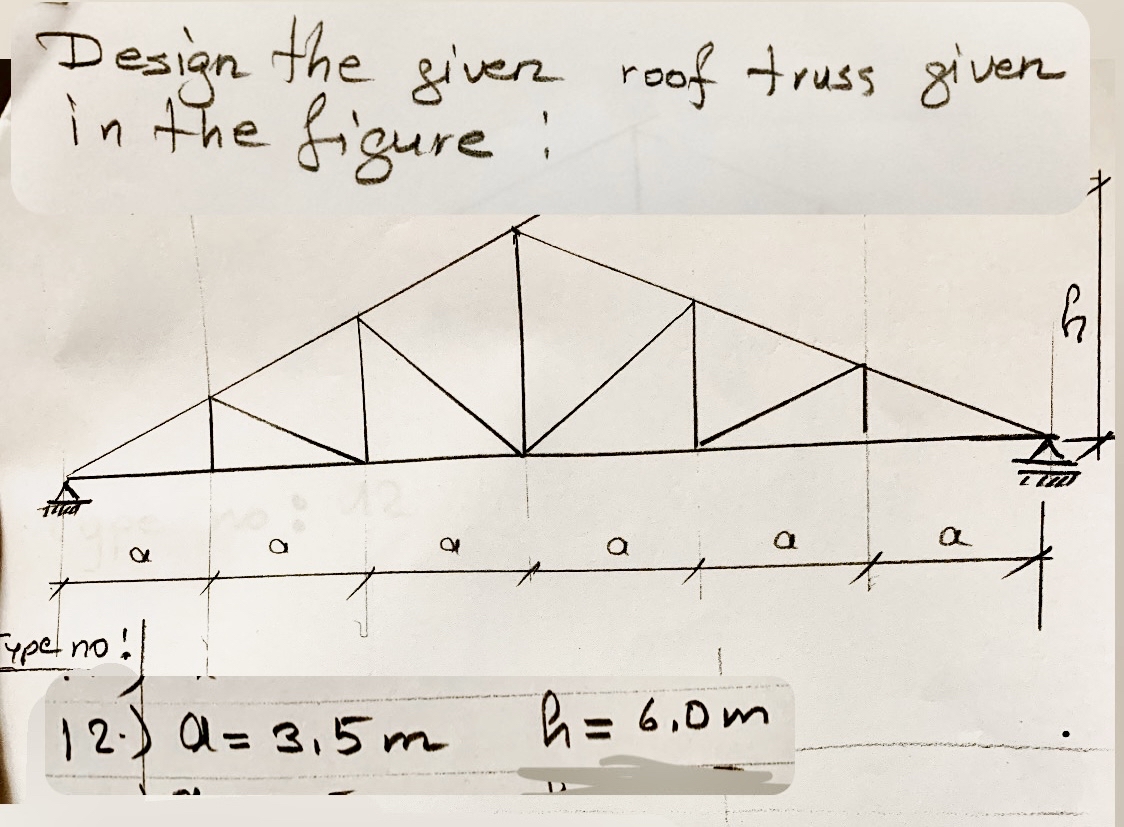 Design the given roof truss given
in the figure :
h
a a a a a a
Type no:
12.) a = 3,5 m h = 6,0 m